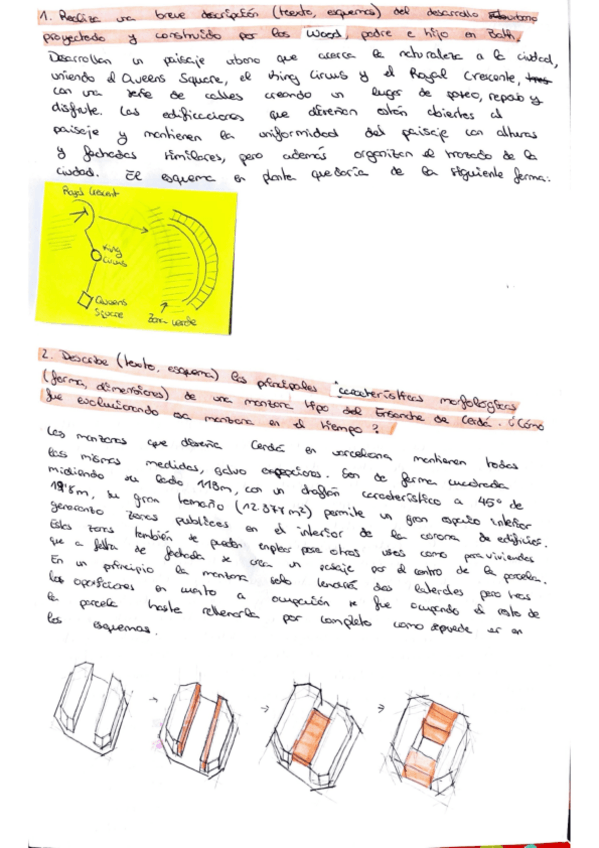 1. Realiza una breve descripción (texto, esquemas) del desarrollo urbano
proyectado y construido por los Wood, padre e hijo en Bath.
Desarrollan un paisaje urbano que acerca la naturaleza a la ciudad,
uniendo el Queens Square, el King Circus y el Royal Crescente,
con una serie de calles creando un lugar de paseo, reposo y
disfrute. Las edificaciones que diseñan están abiertas al
paisaje y mantienen la uniformidad del paisaje con alturas
y fachadas similares, pero además organizan el trazado de la
ciudad. El esquema en planta quedaría de la siguiente forma:
Royal Crescent
King
Circus
Queens
Square
Zona verde
2. Describe (texto, esquema) las principales características morfológicas
(forma, dimensiones) de una manzana tipo del Ensanche de Cerdá. ¿Cómo
fue evolucionando esa manzana en el tiempo?
Las manzanas que diseña Cerdá en Barcelona mantienen todas
las mismas medidas, salvo excepciones. Son de forma cuadrada
midiendo su lado 113m, con un chaflán característico a 45º de
19'8m, su gran tamaño (12.370m2) permite un gran espacio interior
generando zonas públicas en el interior de la corona de edificios.
Estas zonas también se pueden emplear para otros usos como para viviendas
que a falta de fachada se crea un pasaje por el centro de la parcela.
En un principio la manzana solo tendría dos laterales pero tras
las oposiciones en cuanto a ocupación se fue ocupando el resto de
la parcela hasta rellenarla por completo como se puede ver en
los esquemas.